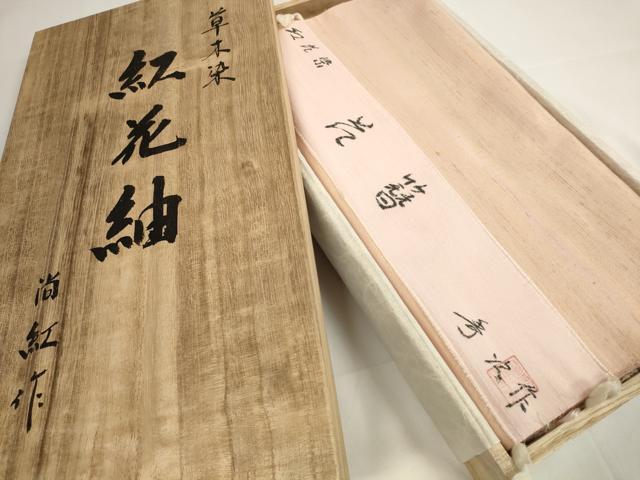 草木染
紅花紬
尚紅作
紅花染
花簪
秀次作